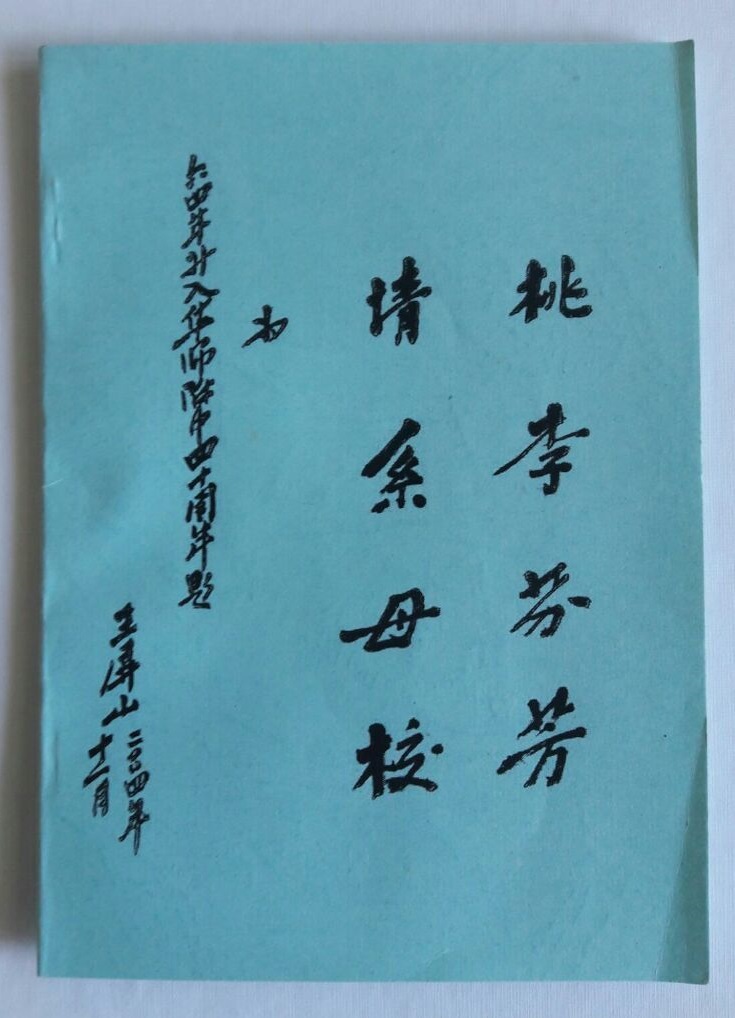 桃李芬芳
情系母校
为
六四年升入华师附中四十周年题
王屏山 二〇〇四年
十一月